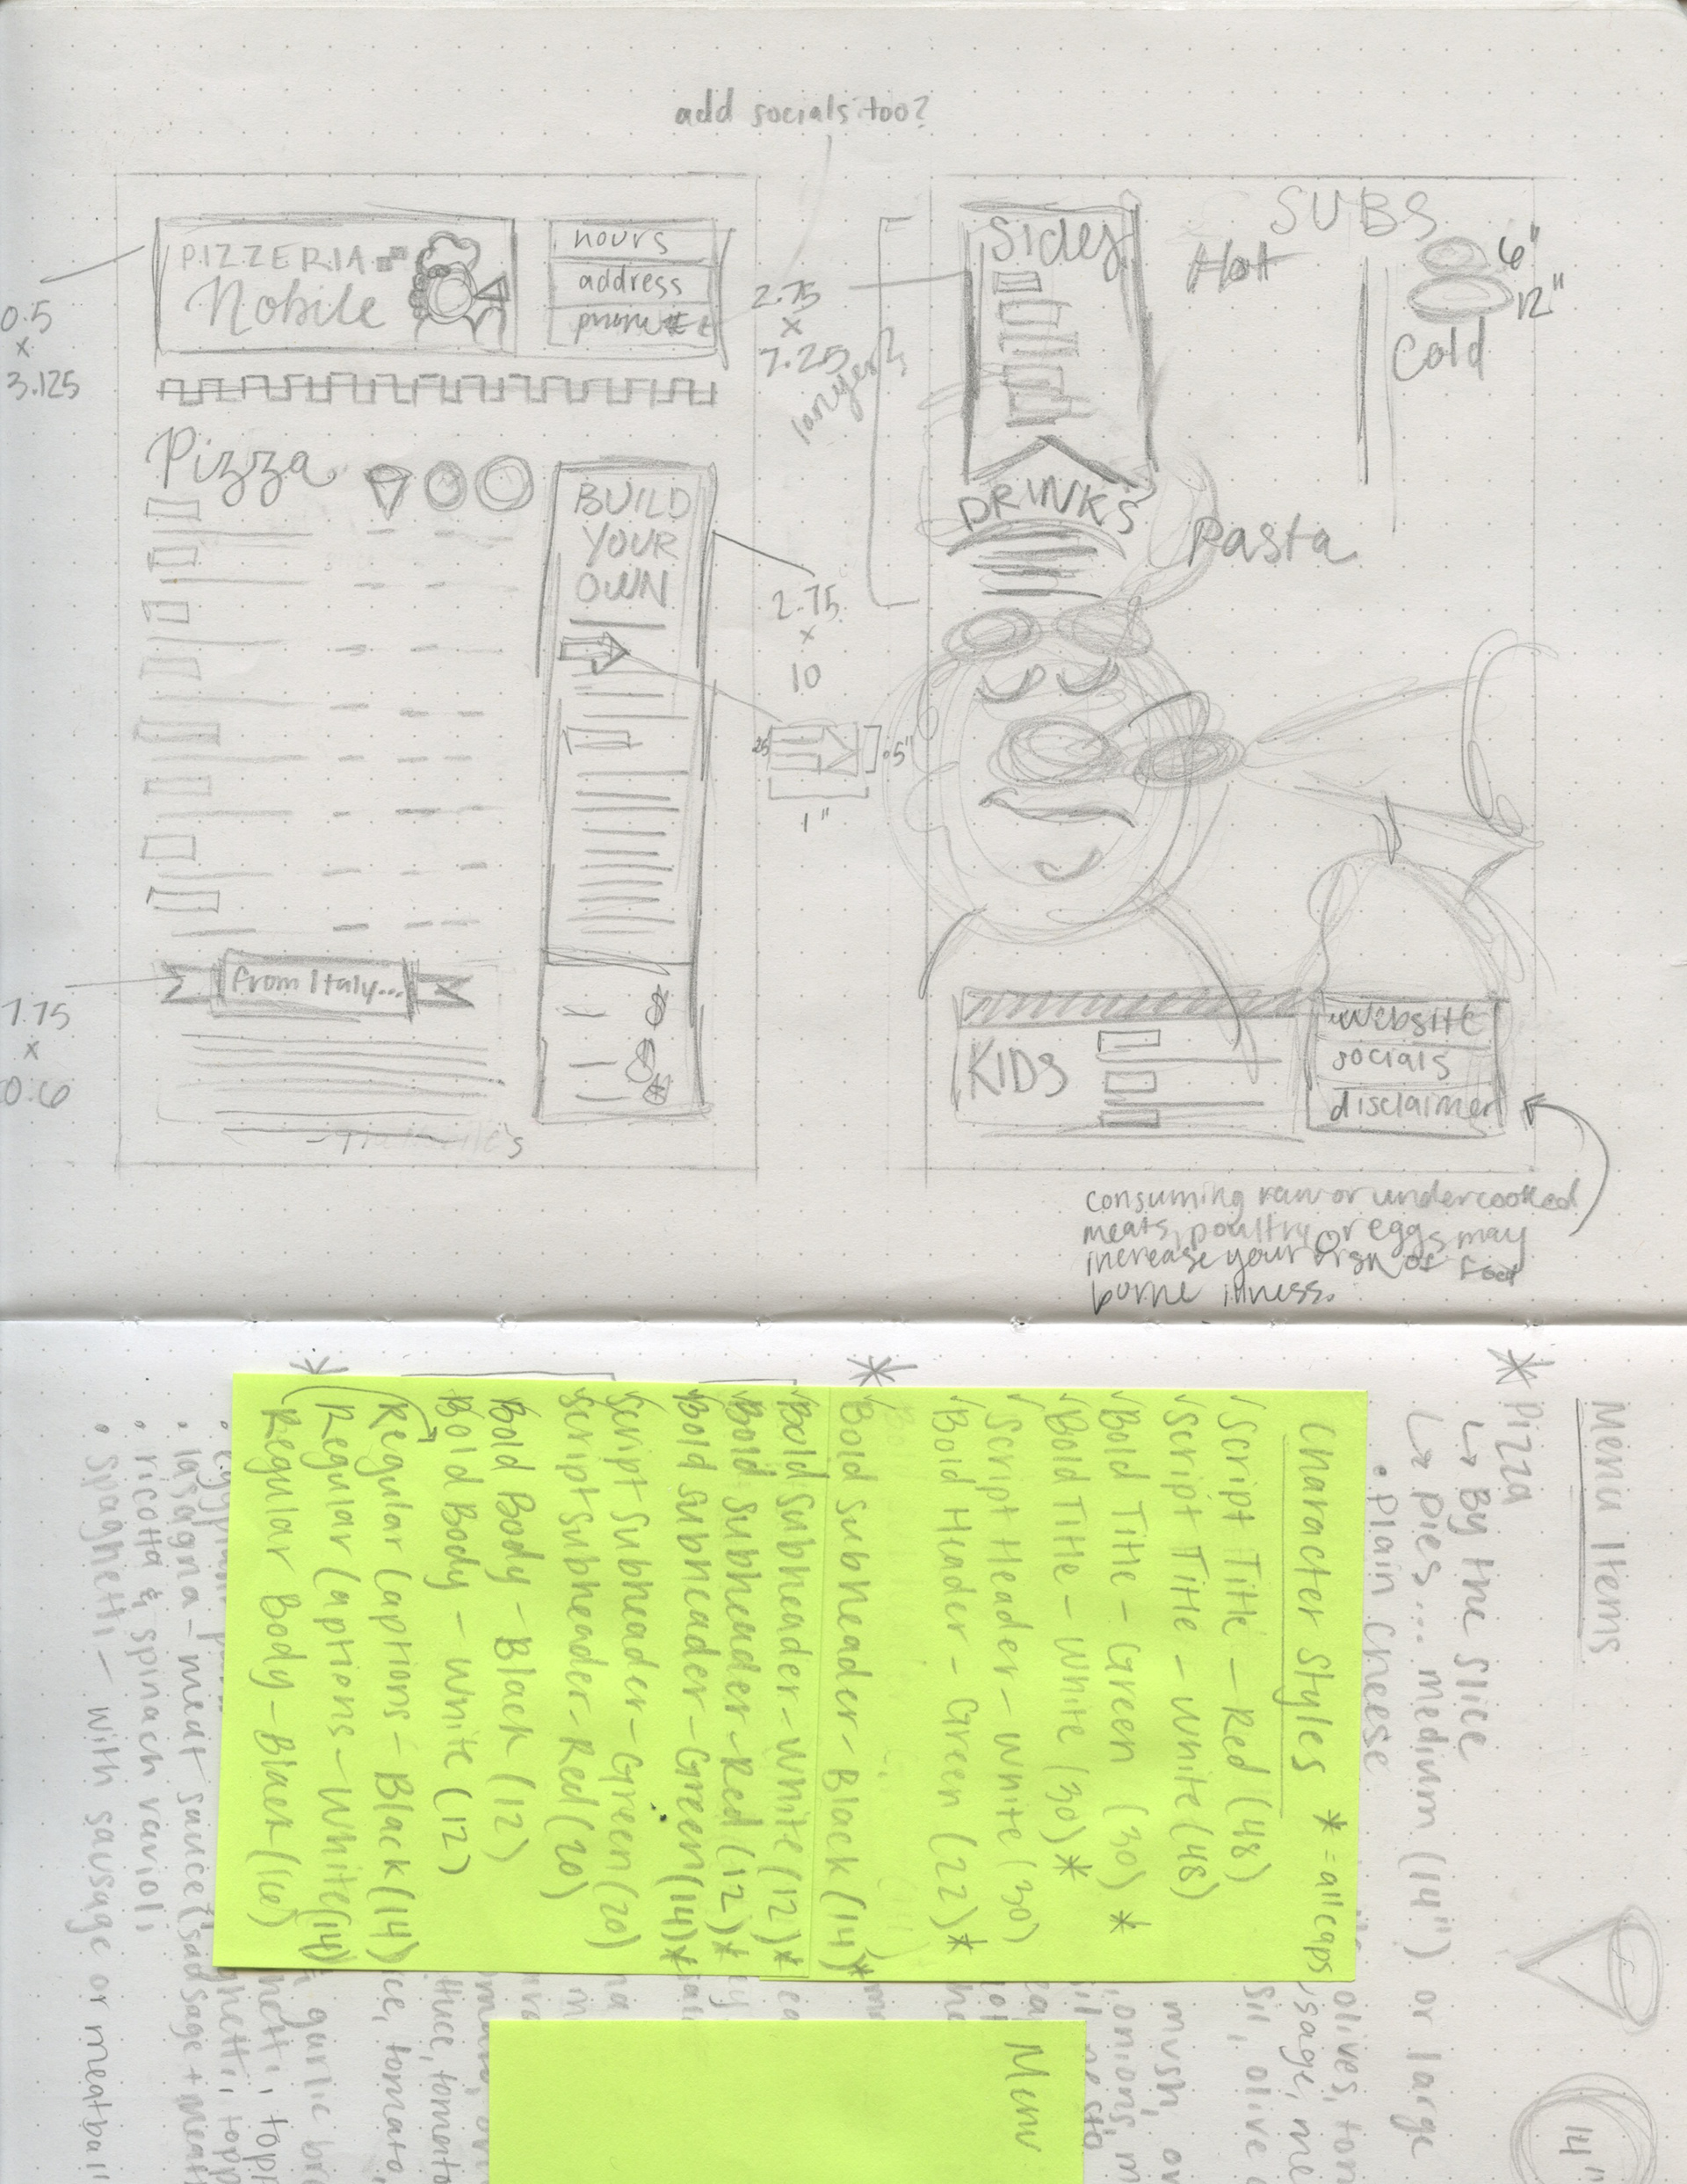 add socials too?
PIZZERIA
Nobile
hours
address
phone #
0.5
x
3.125
Pizza
BUILD
YOUR
OWN
2.75
x
10
.25
.5"
1"
From Italy...
1.75
x
0.6
2.75
x
7.25
longer?
Sides
DRINKS
SUBS
Hot
6"
12"
Cold
Pasta
KIDS
website
socials
disclaimer
consuming raw or undercooked
meats, poultry or eggs may
increase your risk of food
borne illness.
Menu Items
* Pizza
↳ By the Slice
↳ pies... medium (14") or large
• Plain Cheese
14"
Character Styles * = all caps
✓Script Title - Red (48)
✓Script Title - White (48)
✓Bold Title - Green (30) *
✓Bold Title - White (30) *
✓Script Header - White (30)
✓Bold Header - Green (22) *
* Bold Subheader - Black (14) *
✓Bold Subheader - White (12) *
✓Bold Subheader - Red (12) *
✓Bold Subheader - Green (14) *
✓Script Subheader - Green (20)
✓Script Subheader - Red (20)
Bold Body - Black (12)
✓Bold Body - White (12)
Regular Captions - Black (14)
Regular Captions - White (14)
Regular Body - Black (16)
olives,
sage,
olive
mush,
onions,
Menu
tuce, tomato
ice, tomato,
garlic
• lasagna - meat sauce (sausage + meat
• ricotta & spinach ravioli
• Spaghetti - with sausage or meatball